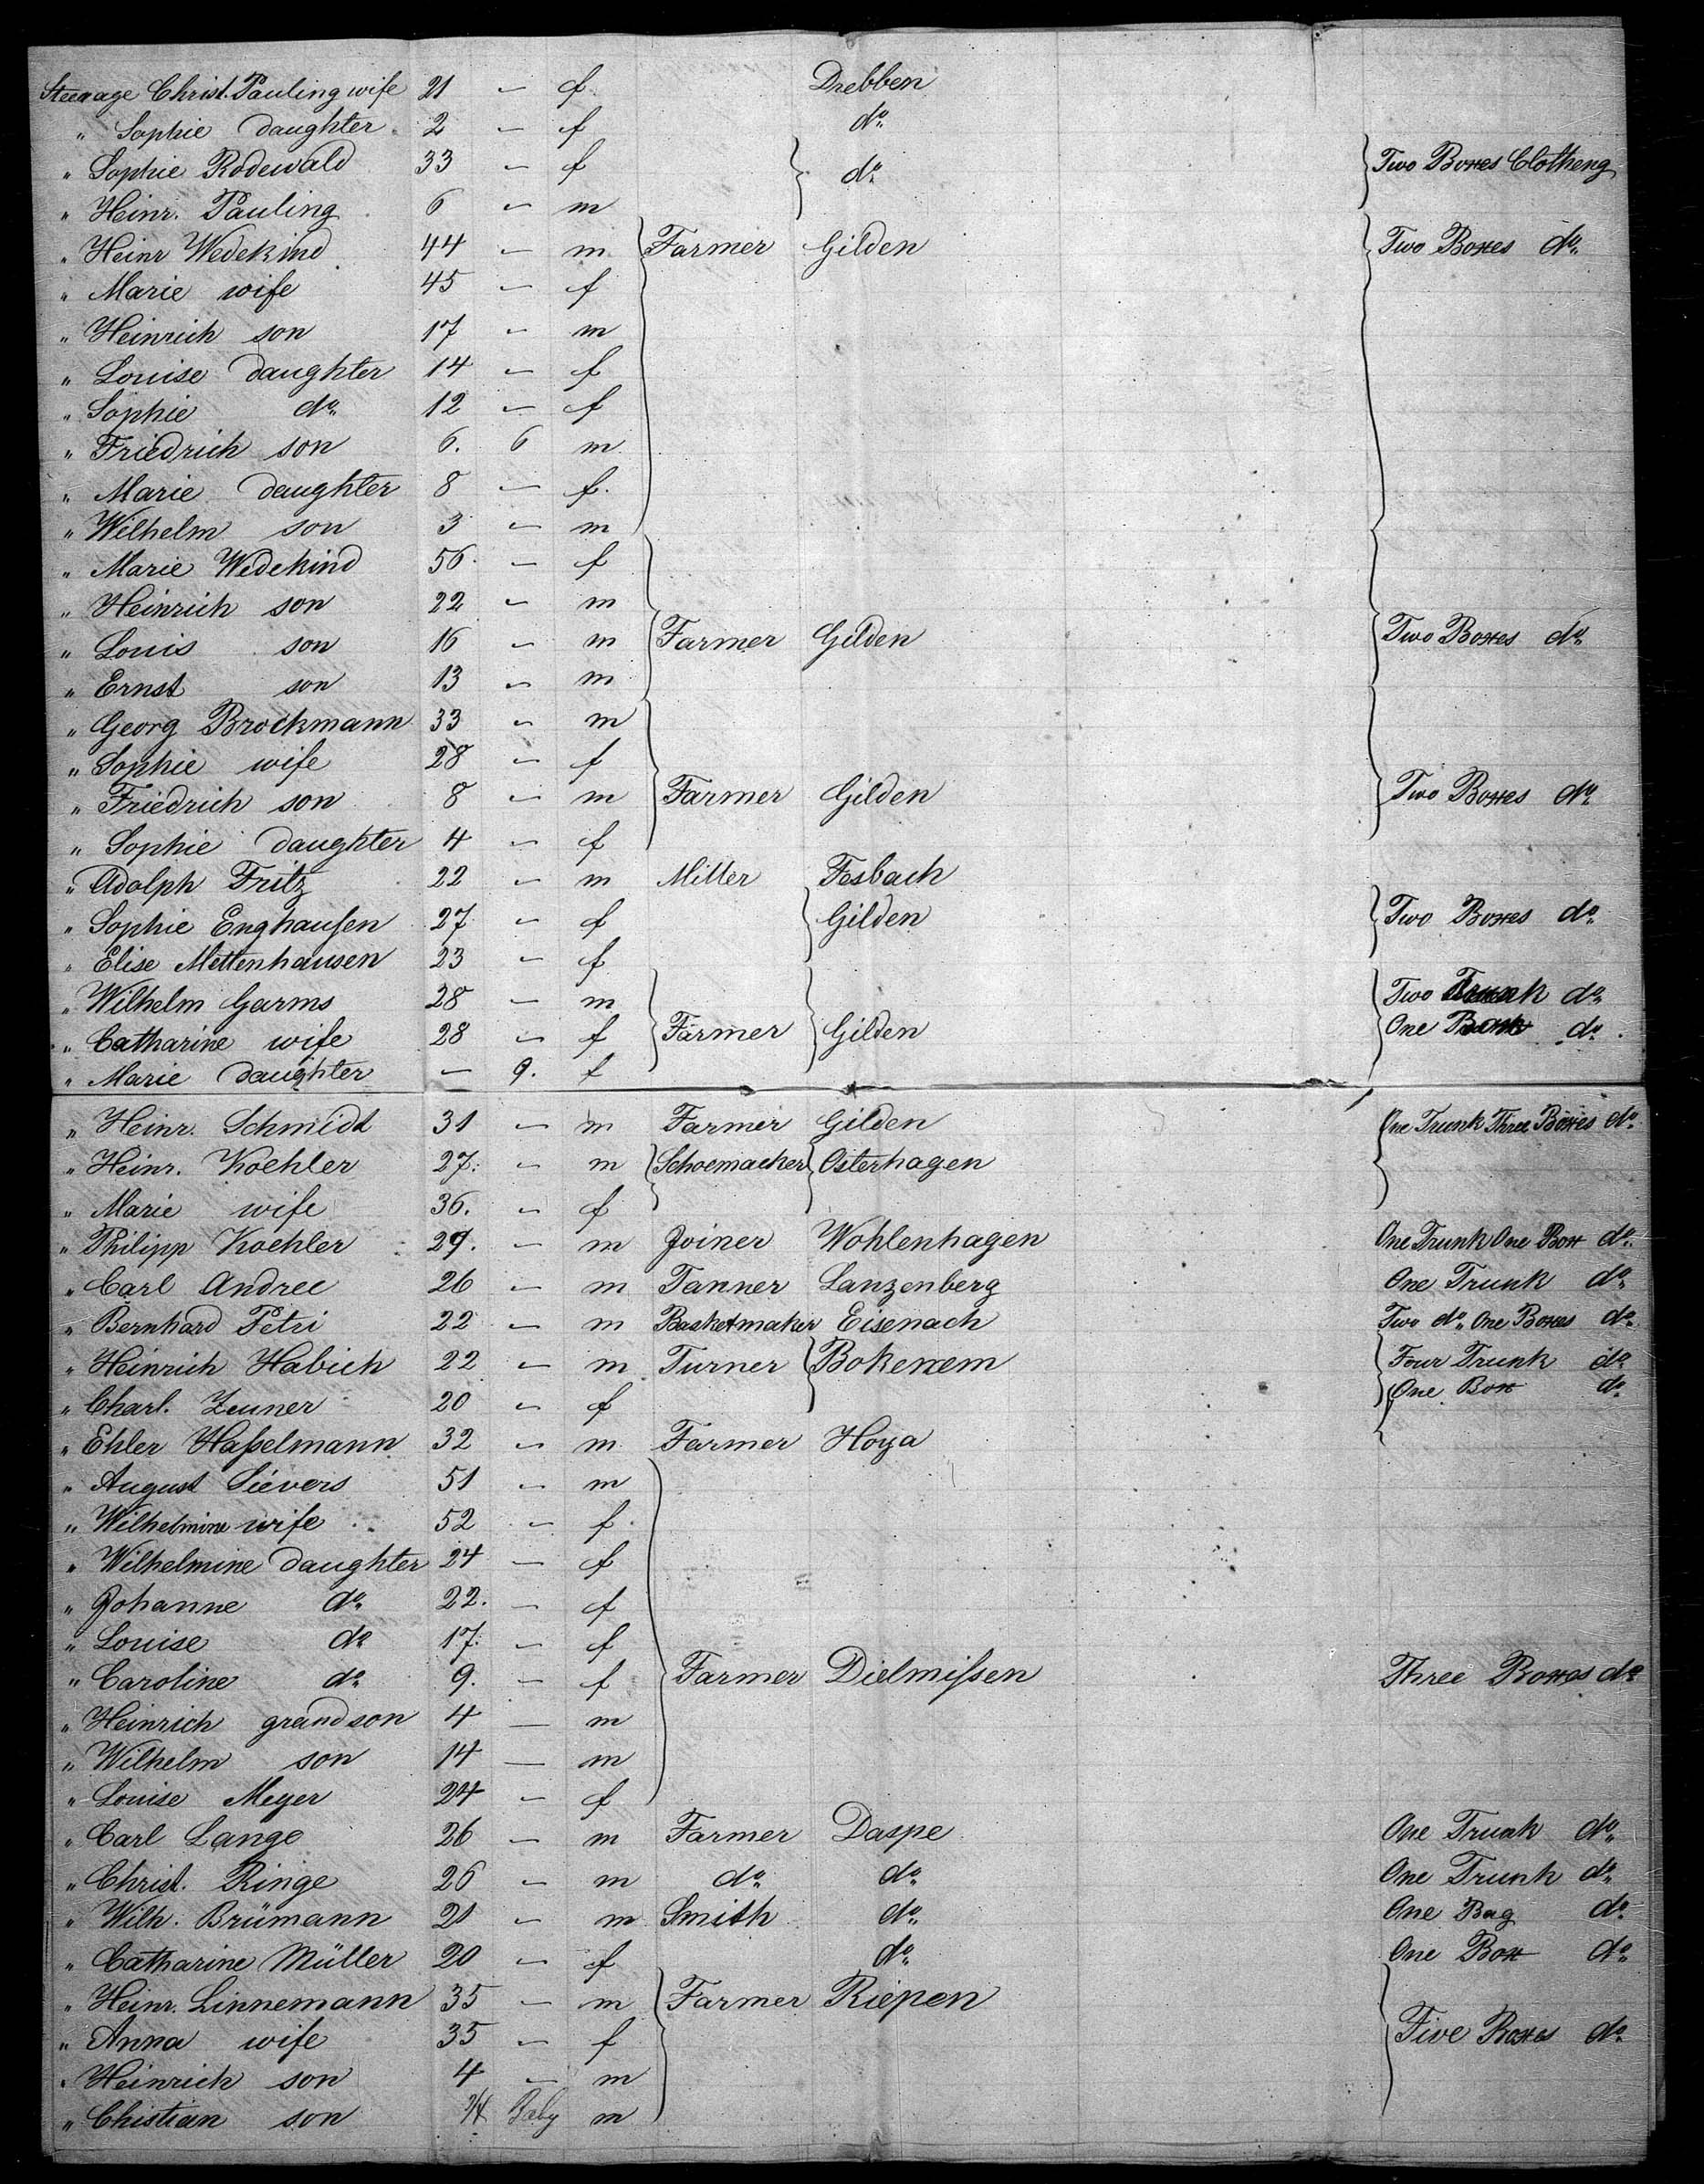 Steerage Christ. Pauling wife 21 – f Drebben
" Sophie daughter 2 – f do
" Sophie Rodewald 33 – f do Two Boxes Clotheng
" Heinr. Pauling 6 – m
" Heinr Wedekind 44 – m Farmer Gilden Two Boxes do
" Marie wife 45 – f
" Heinrich son 17 – m
" Louise daughter 14 – f
" Sophie do 12 – f
" Friedrich son 6. 6 m
" Marie daughter 8 – f.
" Wilhelm son 3 – m
" Marie Wedekind 56 – f
" Heinrich son 22 – m
" Louis son 16 – m Farmer Gilden Two Boxes do
" Ernst son 13 – m
" Georg Brockmann 33 – m
" Sophie wife 28 – f
" Friedrich son 8 – m Farmer Gilden Two Boxes do
" Sophie daughter 4 – f
" Adolph Fritz 22 – m Miller Fesbach
" Sophie Enghaußen 27 – f Gilden Two Boxes do
" Elise Mettenhausen 23 – f
" Wilhelm Garms 28 – m Two Trunk do
" Catharine wife 28 – f Farmer Gilden One do
" Marie daughter – 9. f
" Heinr. Schmidt 31 – m Farmer Gilden One Trunk Three Boxes do
" Heinr. Koehler 27. – m Schoemacher Osterhagen
" Marie wife 36. – f
" Philipp Koehler 29. – m Joiner Wohlenhagen One Trunk One Box do
" Carl Andree 26 – m Tanner Lanzenberg One Trunk do
" Bernhard Petri 22 – m Basketmaker Eisenach Two do One Boxes do
" Heinrich Habich 22 – m Turner Bokenem Four Trunk do
" Charl. Zeuner 20 – f One Box do
" Ehler Haßelmann 32 – m Farmer Hoya
" August Sievers 51 – m
" Wilhelmine wife 52 – f
" Wilhelmine daughter 24 – f
" Johanne do 22. – f
" Louise do 17. – f
" Caroline do 9. – f Farmer Dielmißen Three Boxes do
" Heinrich grandson 4 – m
" Wilhelm son 14 – m
" Louise Meyer 24 – f
" Carl Lange 26 – m Farmer Daspe One Trunk do
" Christ. Ringe 26 – m do do One Trunk do
" Wilh. Brümann 21 – m Smith do One Bag do
" Catharine Müller 20 – f do One Box do
" Heinr. Linnemann 35 – m Farmer Riepen
" Anna wife 35 – f Five Boxes do
" Heinrich son 4 – m
" Chistian son Baby m